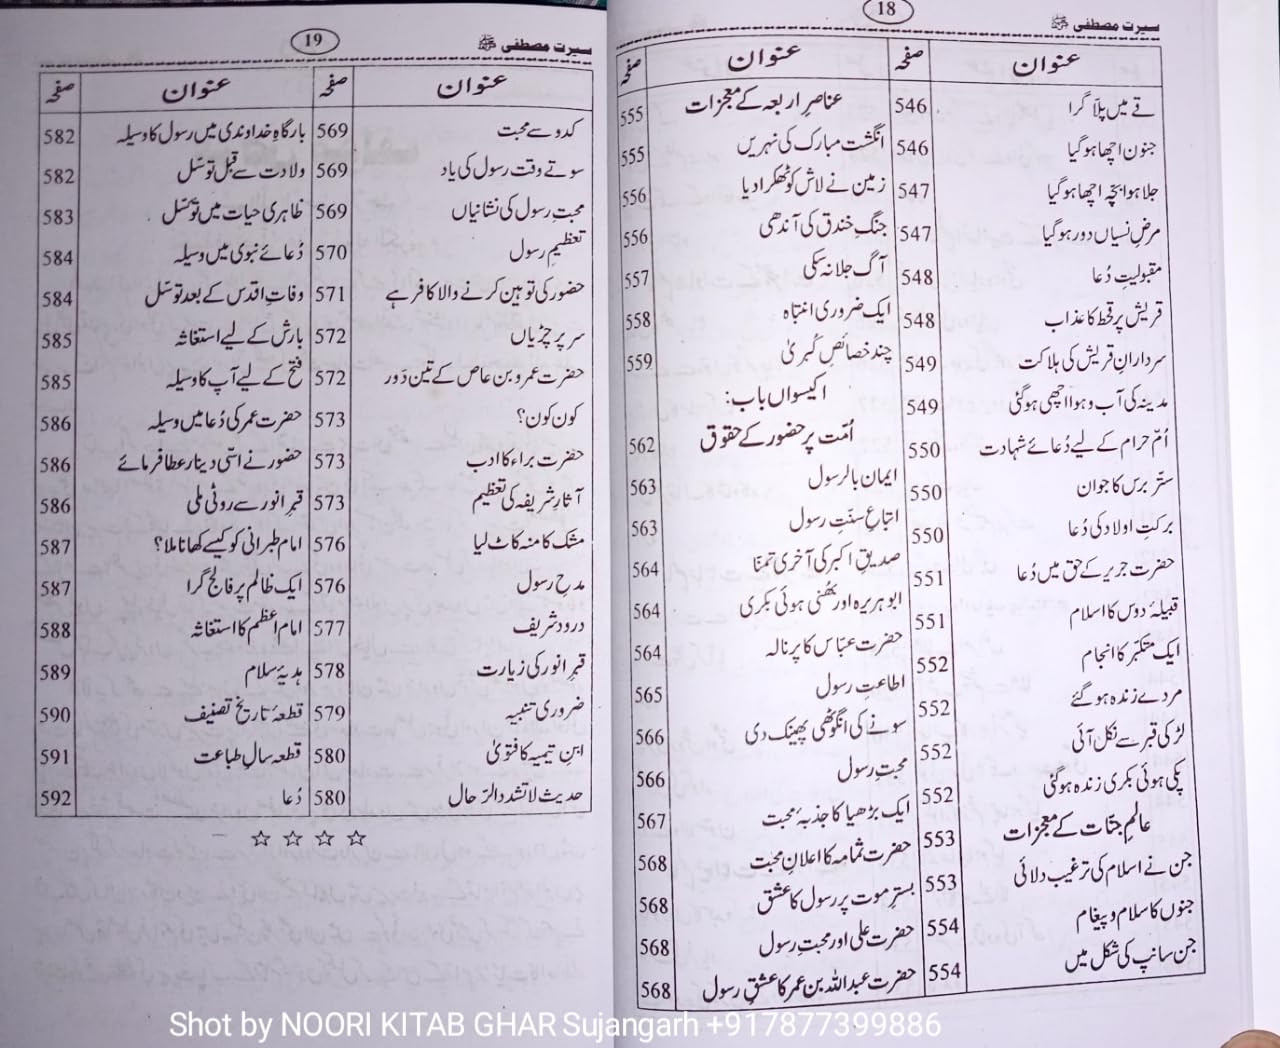 18
سیرت مصطفی ﷺ
عنوان صفحہ عنوان صفحہ
قے میں پلا گرا 546
جنون اچھا ہو گیا 546
جلا ہوا بچہ اچھا ہو گیا 547
مرضِ نسیاں دور ہو گیا 547
مقبولیتِ دُعا 548
قریش پر قحط کا عذاب 548
سردارانِ قریش کی ہلاکت 549
مدینہ کی آب و ہوا اچھی ہو گئی 549
اُمِّ حرام کے لیے دُعائے شہادت 550
ستر برس کا جوان 550
برکتِ اولاد کی دُعا 550
حضرت جریر کے حق میں دُعا 551
قبیلۂ دوس کا اسلام 551
ایک متکبّر کا انجام 552
مردے زندہ ہو گئے 552
لڑکی قبر سے نکل آئی 552
پکی ہوئی بکری زندہ ہو گئی 552
عالمِ جنّات کے معجزات 553
جن نے اسلام کی ترغیب دلائی 553
جنوں کا سلام و پیغام 554
جن سانپ کی شکل میں 554
عناصرِ اربعہ کے معجزات 555
انگشت مبارک کی نہریں 555
زمین نے لاش کو ٹھکرا دیا 556
جنگِ خندق کی آندھی 556
آگ جلا نہ سکی 557
ایک ضروری انتباہ 558
چند خصائصِ کُبریٰ 559
اکیسواں باب:
اُمّت پر حضور کے حقوق 562
ایمان بالرسول 563
اتباعِ سنّتِ رسول 563
صدیقِ اکبر کی آخری تمنّا 564
ابو ہریرہ اور بُھنی ہوئی بکری 564
حضرت عبّاس کا پرنالہ 564
اطاعتِ رسول 565
سونے کی انگوٹھی پھینک دی 566
محبتِ رسول 566
ایک بڑھیا کا جذبۂ محبت 567
حضرت ثمامہ کا اعلانِ محبت 568
بسترِ موت پر رسول کا عشق 568
حضرت علی اور محبتِ رسول 568
حضرت عبد اللہ بن عمر کا عشقِ رسول 568
19
سیرت مصطفی ﷺ
عنوان صفحہ عنوان صفحہ
کدو سے محبت 569
سوتے وقت رسول کی یاد 569
محبتِ رسول کی نشانیاں 569
تعظیمِ رسول 570
حضور کی توہین کرنے والا کافر ہے 571
سر پر چڑیاں 572
حضرت عمرو بن عاص کے تین دَور 572
کون کون؟ 573
حضرت براء کا ادب 573
آثارِ شریفہ کی تعظیم 573
مشک کا منہ کاٹ لیا 576
مدحِ رسول 576
درود شریف 577
قبرِ انور کی زیارت 578
ضروری تنبیہ 579
ابنِ تیمیہ کا فتویٰ 580
حدیث لا تشدوا الرّحال 580
بارگاہِ خداوندی میں رسول کا وسیلہ 582
ولادت سے قبل توسّل 582
ظاہری حیات میں توسّل 583
دُعائے نبوی میں وسیلہ 584
وفاتِ اقدس کے بعد توسّل 584
بارش کے لیے استغاثہ 585
فتح کے لیے آپ کا وسیلہ 585
حضرت عمر کی دُعا میں وسیلہ 586
حضور نے اسّی دینار عطا فرمائے 586
قبرِ انور سے روٹی ملی 586
امام طبرانی کو کیسے کھانا ملا؟ 587
ایک ظالم پر فالج گرا 587
امام اعظم کا استغاثہ 588
ہدیۂ سلام 589
قطعۂ تاریخِ تصنیف 590
قطعہ سالِ طباعت 591
دُعا 592
Shot by NOORI KITAB GHAR Sujangarh +917877399886